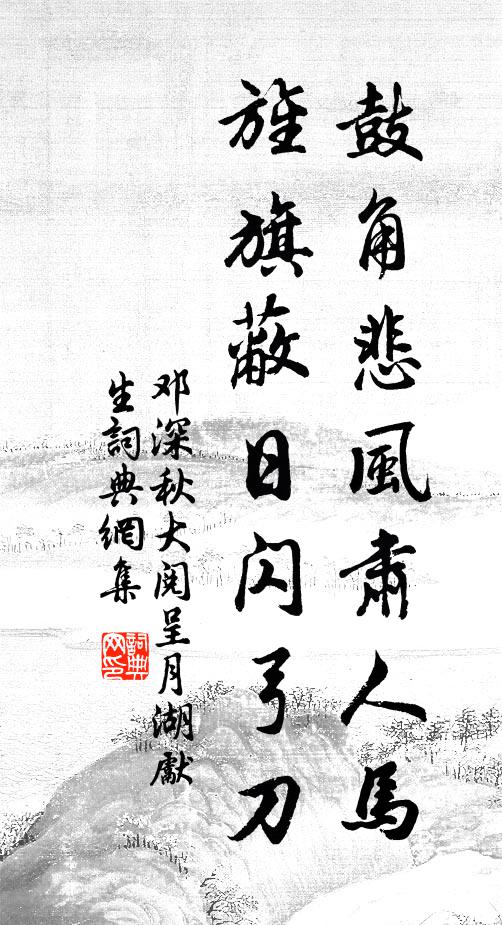 鼓角悲風肅人馬
旌旗蔽日閃弓刀
邓深秋大阅呈月湖獻
生詞典網集
詞典网印